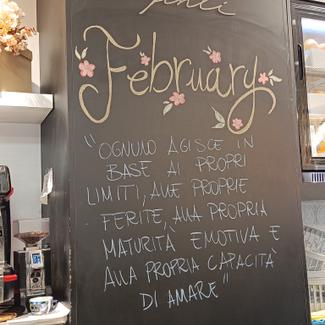 February
"OGNUNO AGISCE IN
BASE AI PROPRI
LIMITI, ALLE PROPRIE
FERITE, ALLA PROPRIA
MATURITÀ EMOTIVA E
ALLA PROPRIA CAPACITÀ
DI AMARE"